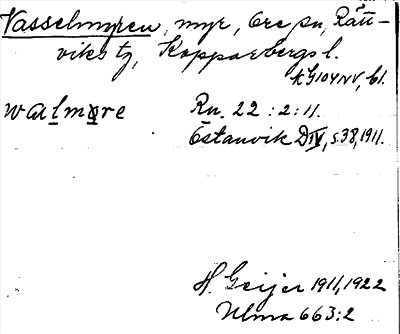 Vasselmyren, myr, Ore sn, Rätt-
viks tg, Kopparbergs l.
walmxre Rn. 22:2:11.
Östanvik DIV, s.38, 1911.
H. Geijer 1911, 1922
Ulma 663:2